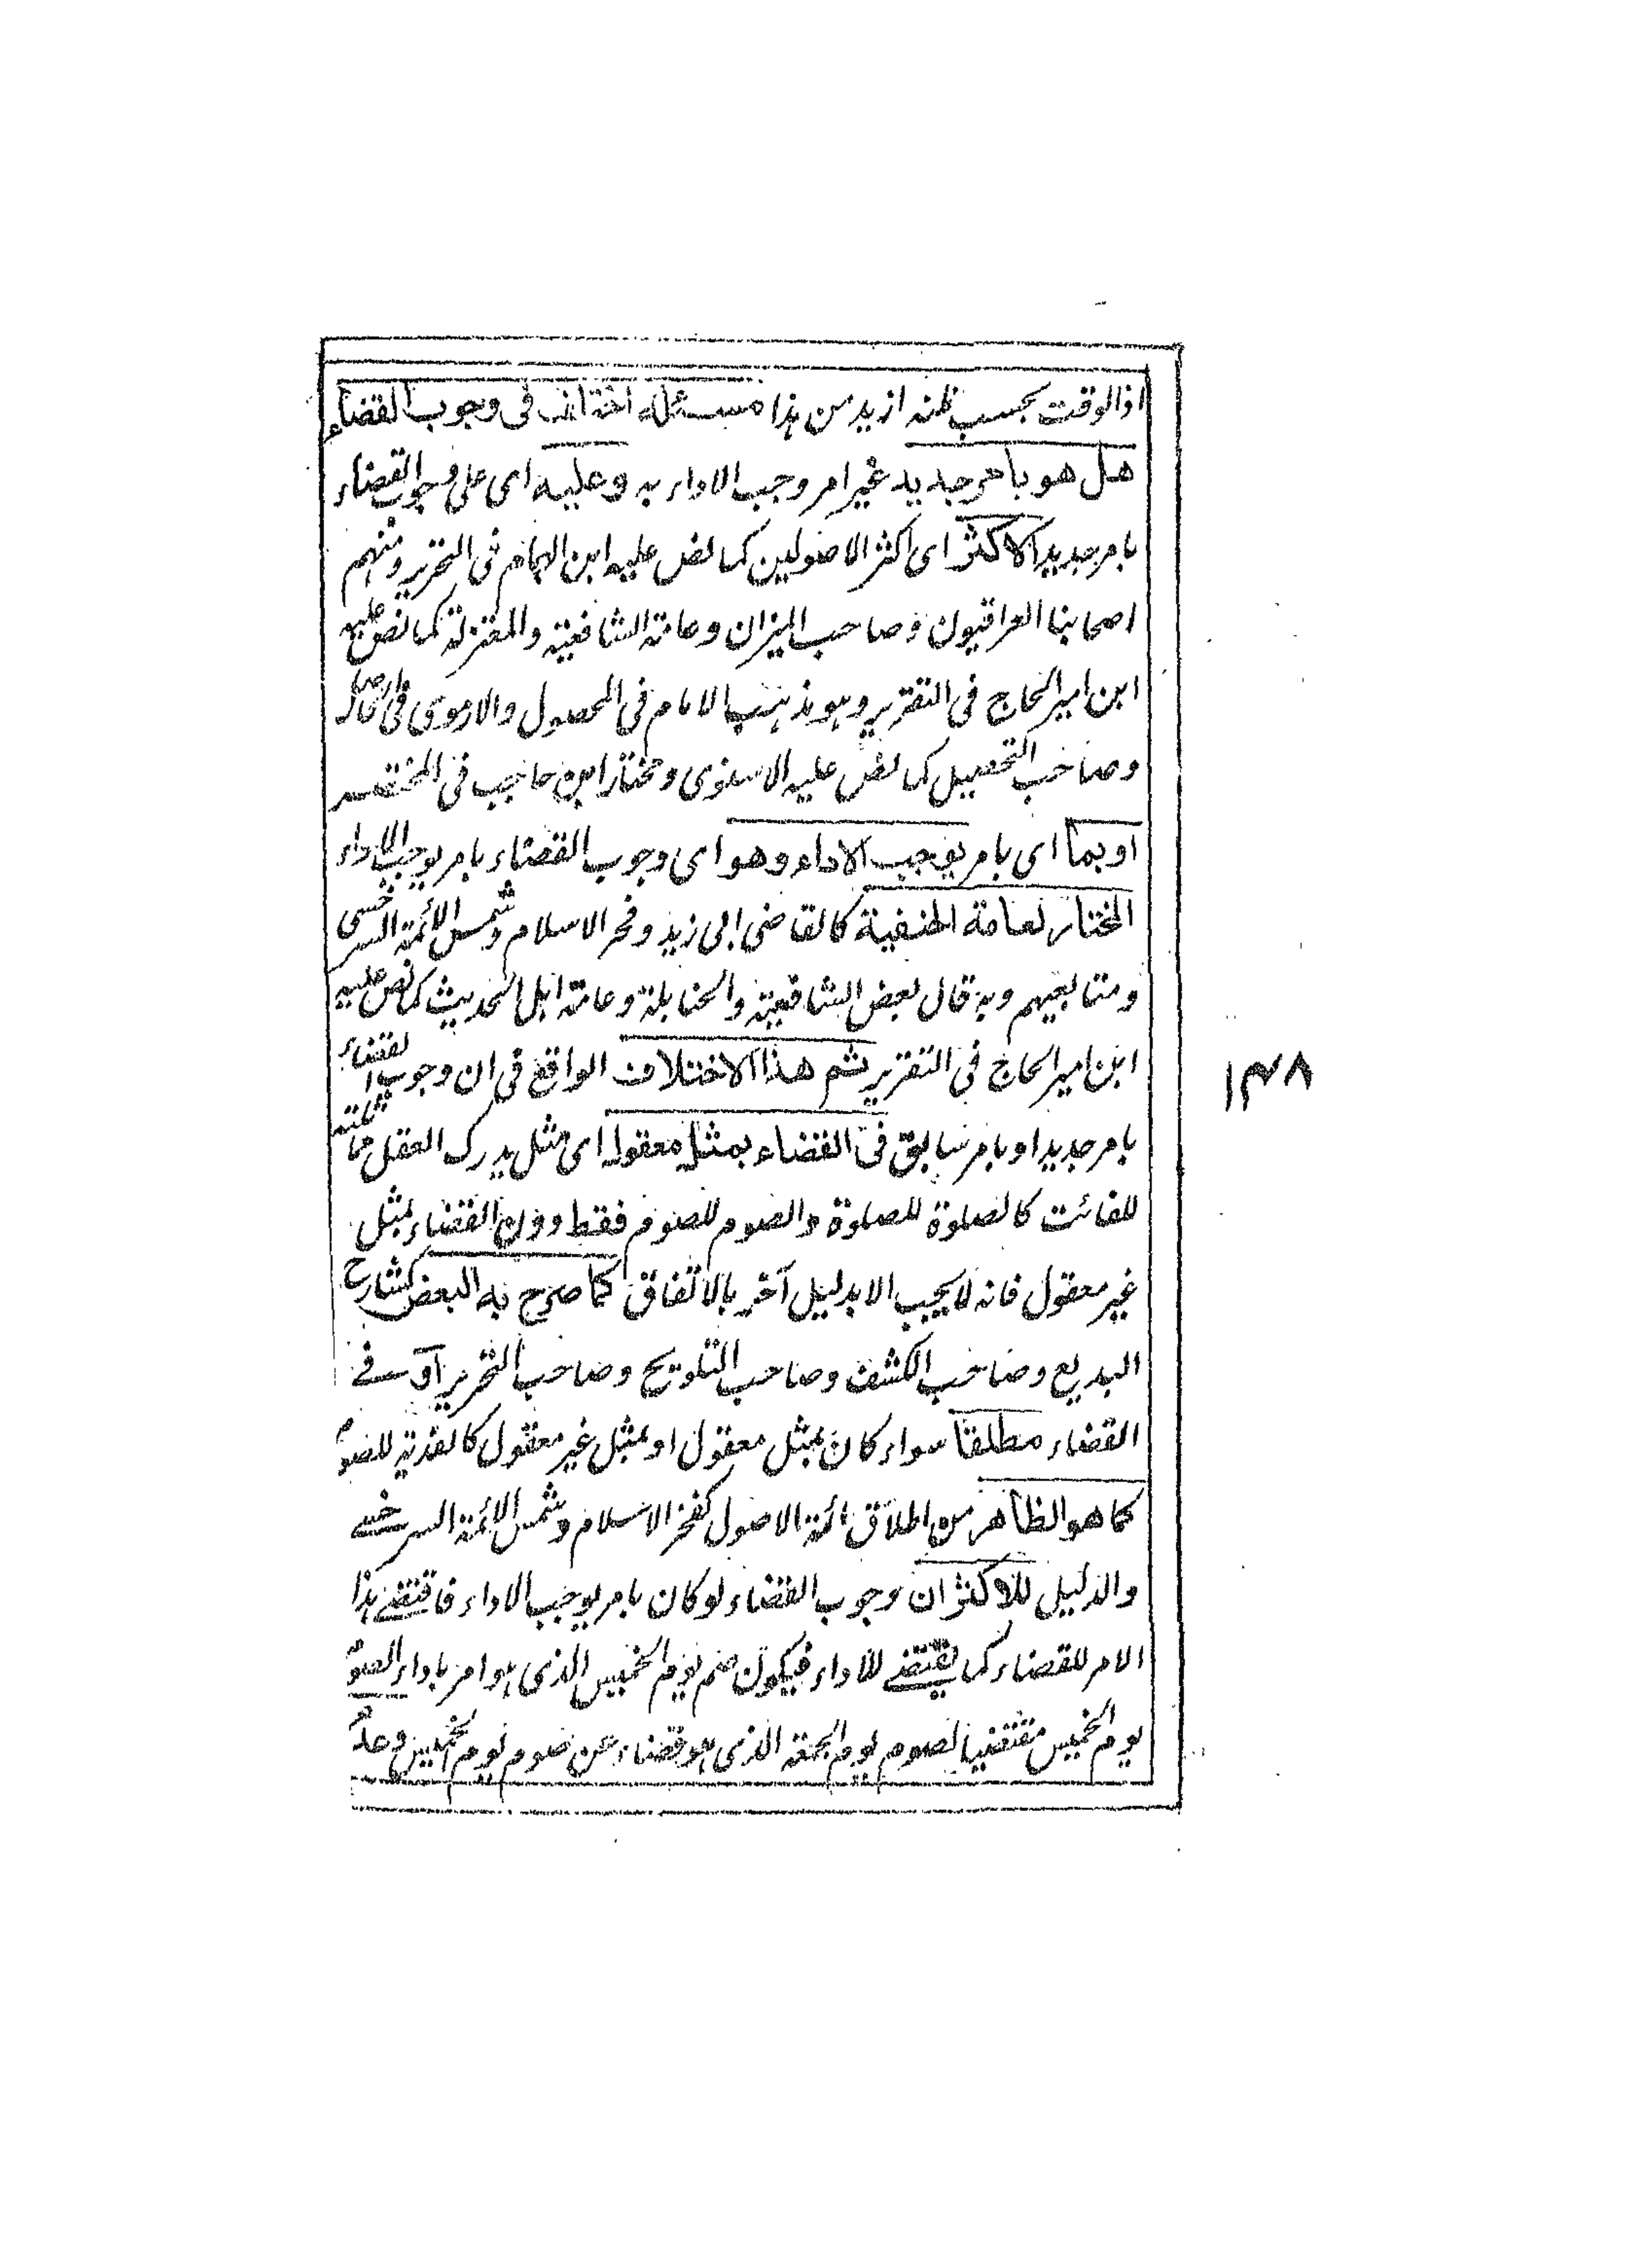 اذ الوقت بحسب ظنه ازيد من هذا مسئلة اختلف فى وجوب القضاء
هل هو بامر جديد غير امر وجب الاداء به وعليه اى على وجوب القضاء
بامر جديد الاكثر اى اكثر الاصوليين كما نص عليه ابن الهمام فى التحرير ومنهم
اصحابنا العراقيون وصاحب الميزان وعامة الشافعية والمعتزلة كما نص عليه
ابن امير الحاج فى التقرير وهو مذهب الامام فى المحصول والارموى فى حاصله
وصاحب التحصيل كما نص عليه الاسنوى ومختار ابن حاجب فى المختصر
او بما اى بامر يوجب الاداء وهو اى وجوب القضاء بامر يوجب الاداء
المختار لعامة الحنفية كالقاضى ابى زيد وفخر الاسلام وشمس الائمة السرخسى
ومتابعيهم وبه قال بعض الشافعية والحنابلة وعامة اهل الحديث كما نص عليه
ابن امير الحاج فى التقرير ثم هذا الاختلاف الواقع فى ان وجوب القضاء
بامر جديد او بامر سابق فى القضاء بمثل معقول اى مثل يدرك العقل مماثلته
للفائت كالصلوة للصلوة والصوم للصوم فقط دون القضاء بمثل
غير معقول فانه لا يجب الا بدليل آخر بالاتفاق كما صرح به البعض كشارح
البديع وصاحب الكشف وصاحب التلويح وصاحب التحرير او فے
القضاء مطلقا سواء كان بمثل معقول او بمثل غير معقول كالفدية للصوم
كما هو الظاهر من اطلاق ائمة الاصول كفخر الاسلام وشمس الائمة السرخسے
والدليل للاكثر ان وجوب القضاء لو كان بامر يوجب الاداء فاقتضے هذا
الامر للقضاء كما يقتضے للاداء فيكون صم يوم الخميس الذى هو امر باداء الصوم
يوم الخميس مقتضيا لصوم يوم الجمعة الذى هو قضاء عن صوم يوم الخميس وعدم
١٣٨